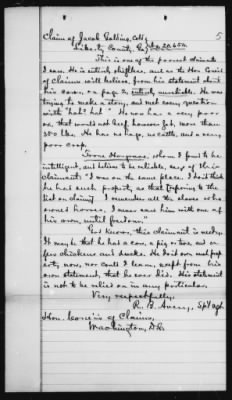 Claim of Jacob Robbins, Cold
5
Liberty County, Ga. No. 20,654
This is one of the poorest claimants
I saw. He is entirely shiftless, and as the Hon. Com'rs
of Claims will believe, from his statement about
his cow, on page 2, entirely unreliable. He was
trying to make a story, and met every question
with "hah? hah." He now has a very poor
ox, that would not keep, however fat, more than
350 lbs. He has no hogs, no cattle, and a very
poor crop.
Toney Hargraves, whom I found to be
intelligent, and believe to be reliable, says of the
claimant: "I was on the same place. I don't think
he had such property, as that (referring to the
list on claim). I remember all the slaves who
owned horses, I never saw him with one of
his own, until freedom."
God knows, this claimant is needy.
It may be that he had a cow, a pig or two, and a
few chickens and ducks. He don't own such prop-
erty, now, nor could I learn, except from his
own statement, that he ever did. His statement
is not to be relied on in any particular.
Very respectfully,
R. B. Avery, Sp'l Agt.
Hon. Com'rs of Claims,
Washington, D.C.